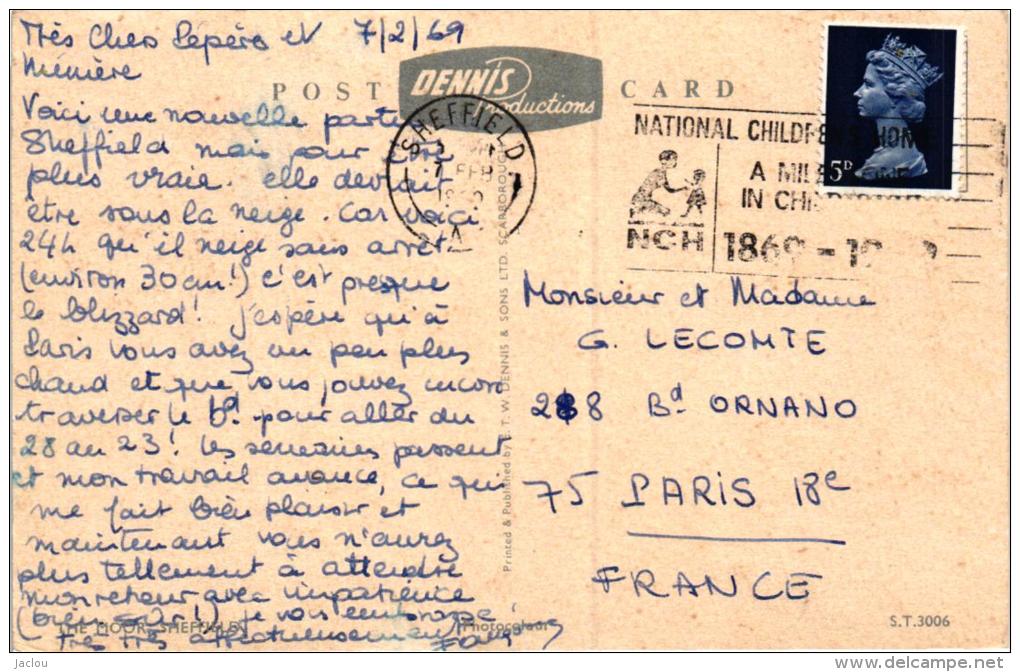 Très Chers Pépère et 7/2/69
Mémère
Voici une nouvelle partie
Sheffield mais pour être
plus vraie. elle devrait
être sous la neige. Car voici
24h qu'il neige sans arrêt
(environ 30 cm!) c'est presque
le blizzard! J'espère qu'à
Paris vous avez un peu plus
chaud et que vous pouvez encore
traverser le bd. pour aller du
28 au 23! Les semaines passent
et mon travail avance, ce qui
me fait bien plaisir et
maintenant vous n'aurez
plus tellement à attendre
mon retour avec impatience
(bien sûr!) Je vous embrasse
très très affectueusement
THE MOOR, SHEFFIELD
POST CARD
DENNIS
Productions
SHEFFIELD
7 FEB
NATIONAL CHILDREN'S HOME
A MILESTONE
IN CH
NCH 1869 - 19
5D
Printed & Published by E. T. W. DENNIS & SONS LTD. SCARBOROUGH
Monsieur et Madame
G. LECOMTE
28 Bd ORNANO
75 PARIS 18e
FRANCE
Photocolour
S.T.3006
http://www.delcampe.net
jaclou